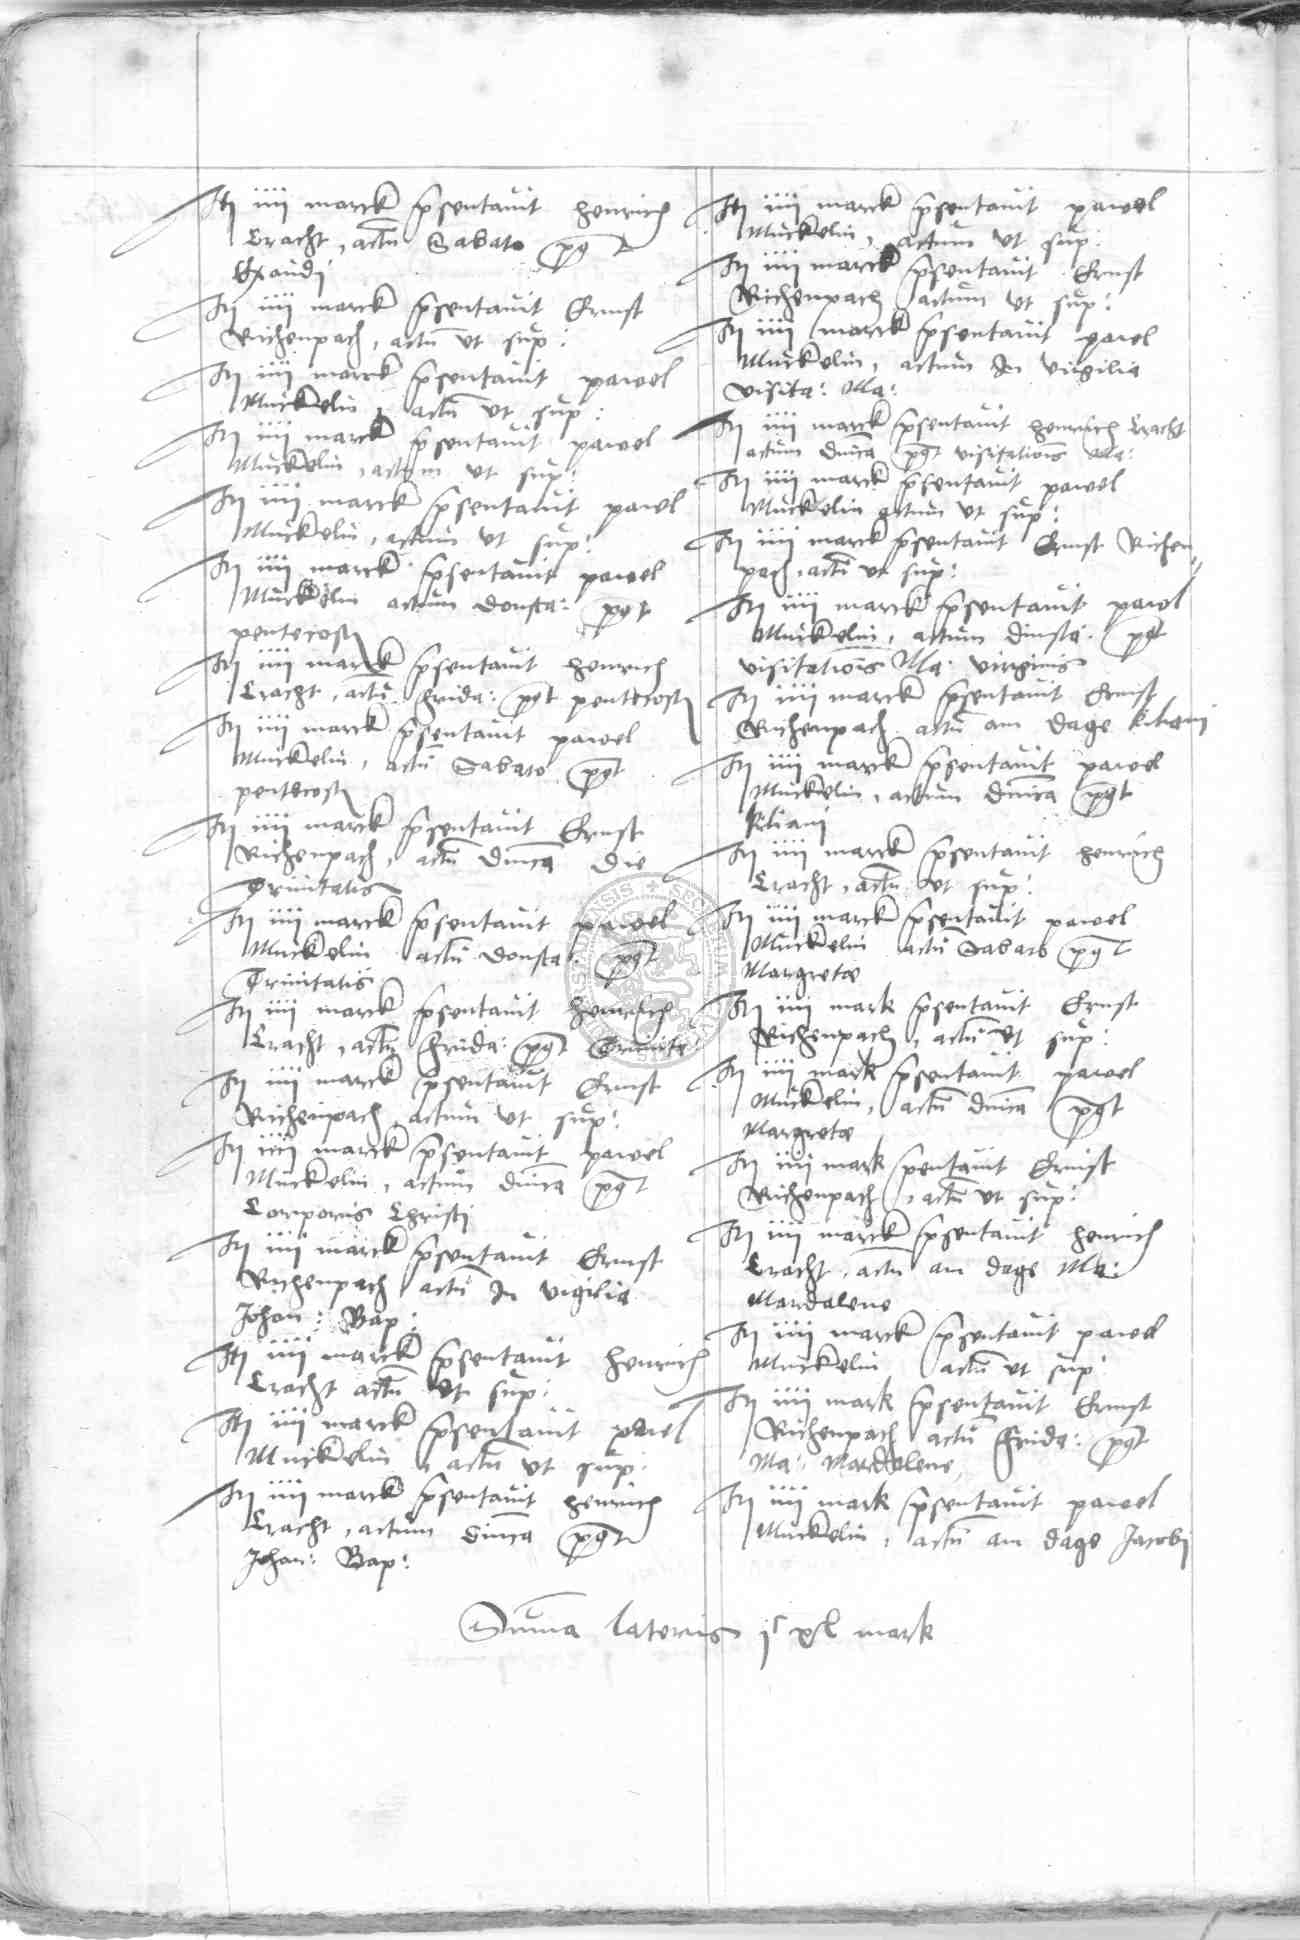 Itz iiii marck psentavit henrich
Cracht, actu Sabato pqt
Exaudi
Itz iiii marck psentavit Ernst
Richenpach, actu ut sup:
Itz iiii marck psentavit pawel
Muckelin, actu ut sup:
Itz iiii marck psentavit pawel
Muckelin, actum ut sup:
Itz iiii marck psentavit pawel
Muckelin, actum ut sup:
Itz iiii marck psentavit pawel
Muckelin actum donsta: pqt
pentecost
Itz iiii marck psentavit henrich
Cracht, actu frida: pqt pentecost
Itz iiii marck psentavit pawel
Muckelin, actu Sabato pqt
pentecost
Itz iiii marck psentavit Ernst
Richenpach, actu dnica die
Trinitatis
Itz iiii marck psentavit pawel
Muckelin actu donsta: pqt
Trinitatis
Itz iiii marck psentavit henrich
Cracht, actu frida: pqt Trinita:
Itz iiii marck psentavit Ernst
Richenpach, actum ut sup:
Itz iiii marck psentavit pawel
Muckelin, actum dnica pqt
Corporis Christi
Itz iiii marck psentavit Ernst
Richenpach actu In vigilia
Johan: Bap:
Itz iiii marck psentavit henrich
Cracht actu ut sup:
Itz iiii marck psentavit pawel
Muckelin, actu ut sup:
Itz iiii marck psentavit henrich
Cracht, actum dnica pqt
Johan: Bap:
Itz iiii marck psentavit pawel
Muckelin, actum ut sup:
Itz iiii marck psentavit Ernst
Richenpach actum ut sup:
Itz iiii marck psentavit pawel
Muckelin, actum In vigilia
visita: Ma:
Itz iiii marck psentavit henrich Cracht
actum dnica pqt visitationis Ma:
Itz iiii marck psentavit pawel
Muckelin actum ut sup:
Itz iiii marck psentavit Ernst Richen
pach, actu ut sup:
Itz iiii marck psentavit pawel
Muckelin, actum dinsta: pqt
visitationis Ma: virginis
Itz iiii marck psentavit Ernst
Richenpach actu am dage kiliani
Itz iiii marck psentavit pawel
Muckelin, actum dnica pqt
kiliani
Itz iiii marck psentavit henrich
Cracht, actu ut sup:
Itz iiii marck psentavit pawel
Muckelin actu Sabato pqt
Margrete
Itz iiii mark psentavit Ernst
Richenpach, actu ut sup:
Itz iiii mark psentavit pawel
Muckelin, actu dnica pqt
Margrete
Itz iiii mark psentavit Ernst
Richenpach, actu ut sup:
Itz iiii marck psentavit henrich
Cracht, actu am dage Ma:
Mardalene
Itz iiii marck psentavit pawel
Muckelin actu ut sup:
Itz iiii mark psentavit Ernst
Richenpach actu frida: pqt
Ma: Mardalene
Itz iiii mark psentavit pawel
Muckelin, actu am dage Jacobi
Suma lateris jc xl mark